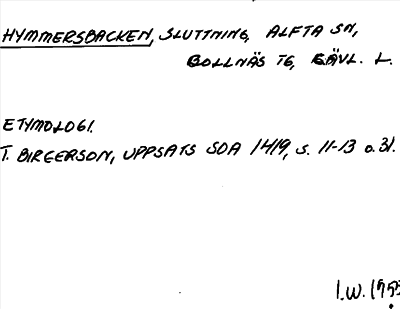 HYMMERSBACKEN, SLUTTNING, ALFTA SN,
BOLLNÄS TG, GÄVL. L.
ETYMOLOGI.
T. BIRGERSON, UPPSATS SOA 1419, s. 11-13 o. 31.
I.W.